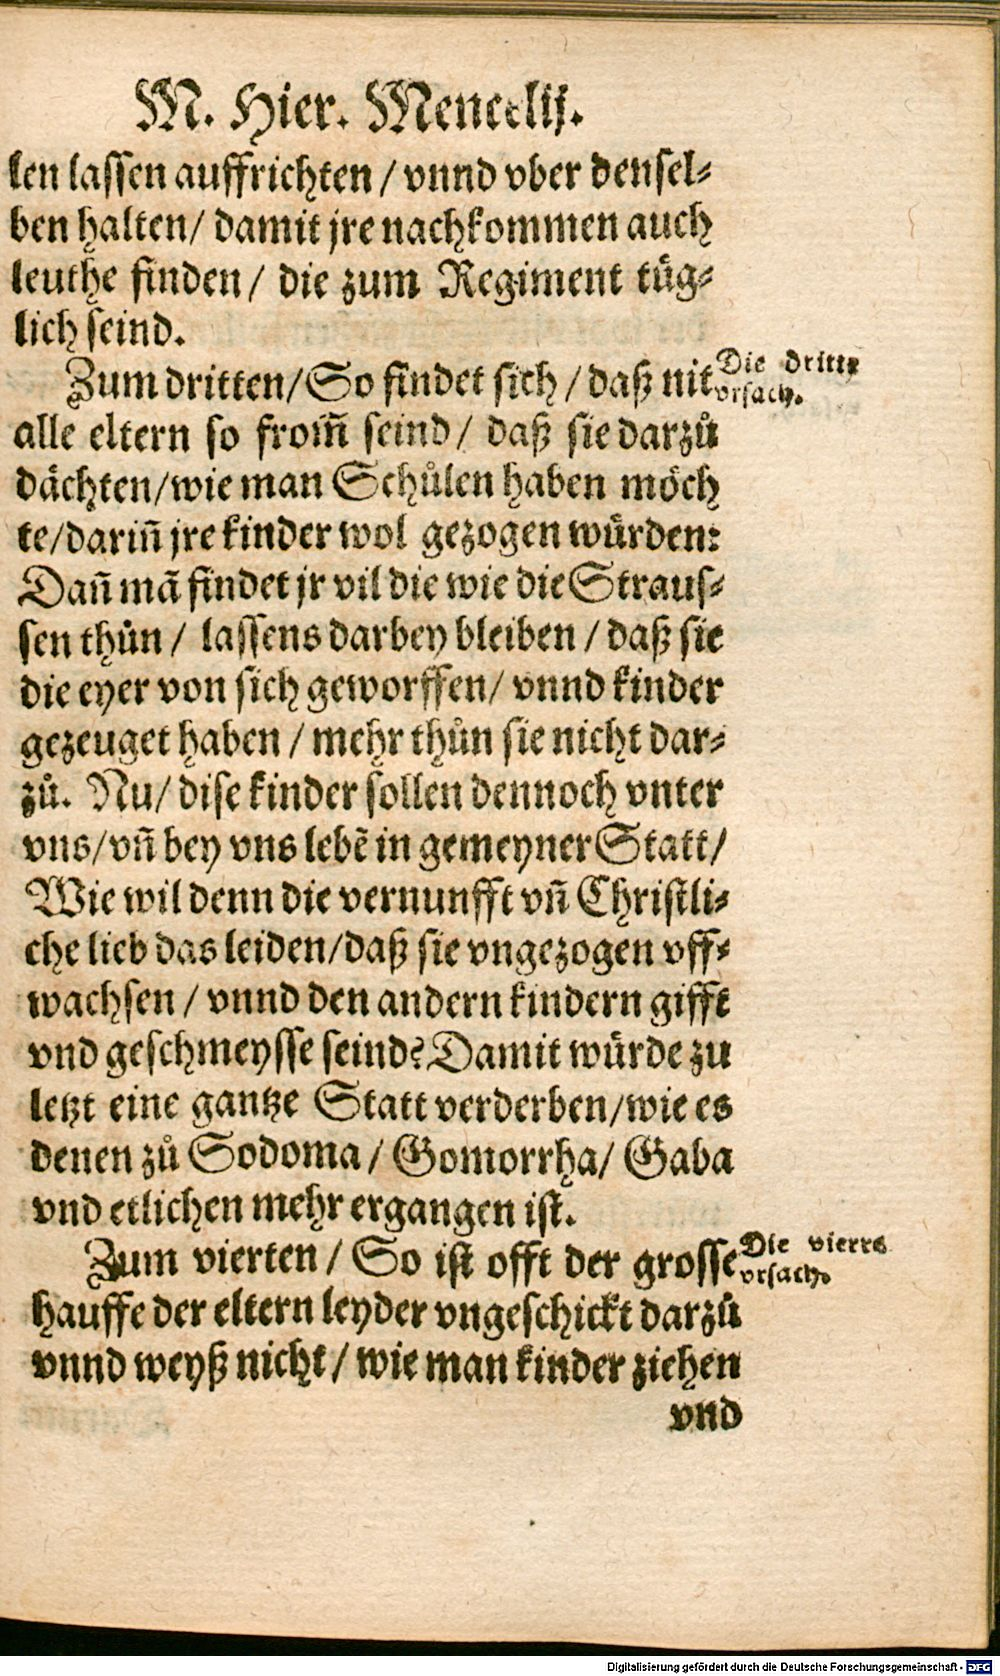 M. Hier. Mencelij.
len lassen auffrichten / vnnd vber densel⸗
ben halten / damit jre nachkommen auch
leuthe finden / die zum Regiment tüg⸗
lich seind.
Zum dritten / So findet sich / daß nit
Die dritte
vrsach.
alle eltern so from̃ seind / daß sie darzů
dächten / wie man Schůlen haben möch
te / dariñ jre kinder wol gezogen würden:
Dañ mã findet jr vil die wie die Straus⸗
sen thůn / lassens darbey bleiben / daß sie
die eyer von sich geworffen / vnnd kinder
gezeuget haben / mehr thůn sie nicht dar⸗
zů. Nu / dise kinder sollen dennoch vnter
vns / vñ bey vns lebẽ in gemeyner Statt /
Wie wil denn die vernunfft vñ Christli⸗
che lieb das leiden / daß sie vngezogen vff⸗
wachsen / vnnd den andern kindern gifft
vnd geschmeysse seind? Damit würde zu
letzt eine gantze Statt verderben / wie es
denen zů Sodoma / Gomorrha / Gaba
vnd etlichen mehr ergangen ist.
Zum vierten / So ist offt der grosse
Die vierte
vrsach.
hauffe der eltern leyder vngeschickt darzů
vnnd weyß nicht / wie man kinder ziehen
vnd
Digitalisierung gefördert durch die Deutsche Forschungsgemeinschaft - DFG